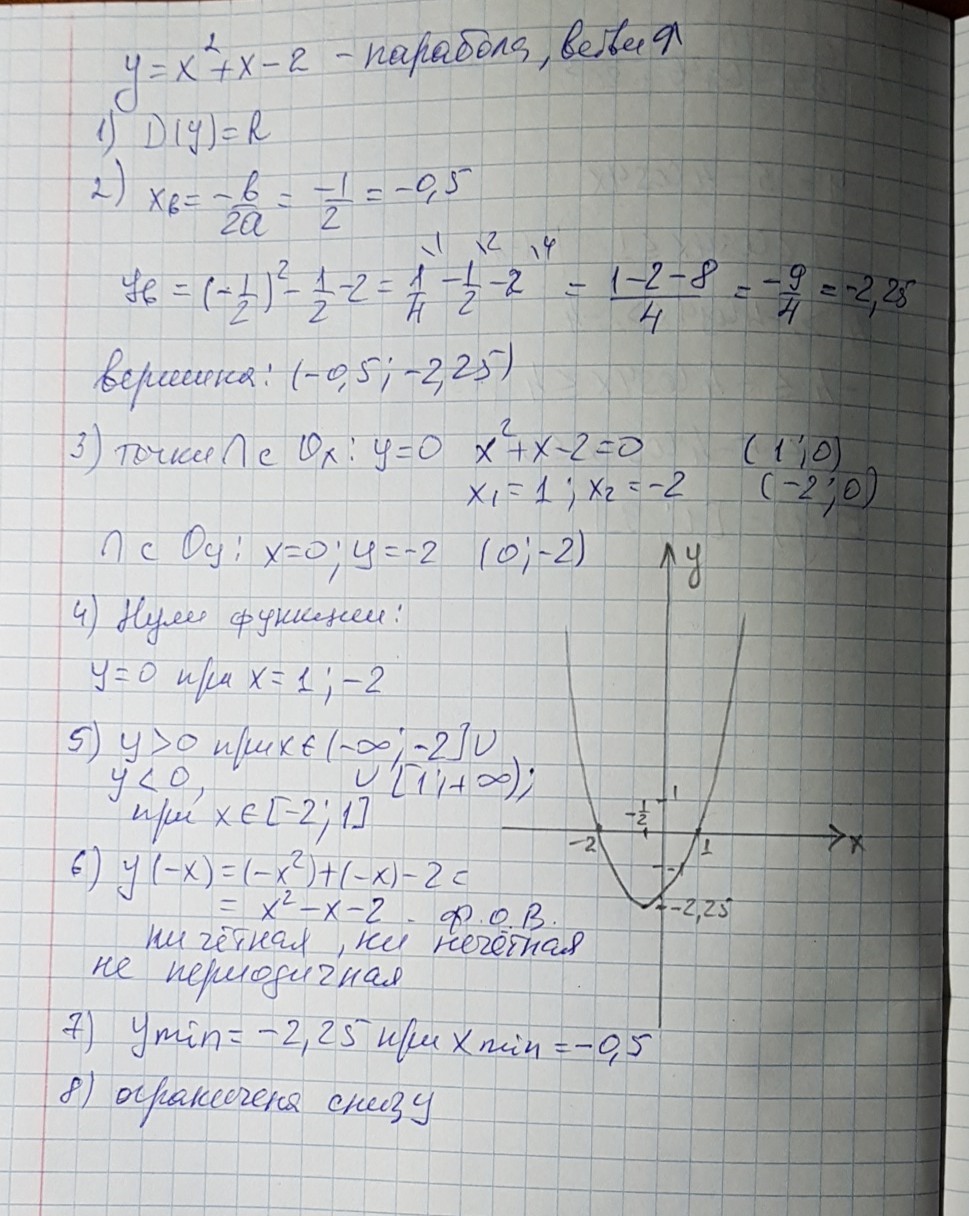 y = x² + x - 2 - парабола, ветви ↑
1) D(y) = R
2) xв = -b/2a = -1/2 = -0,5
yв = (-1/2)² - 1/2 - 2 = 1/4 \1 - 1/2 \2 - 2 \4 = (1-2-8)/4 = -9/4 = -2,25
вершина: (-0,5; -2,25)
3) точки ∩ с Ox: y=0 x²+x-2=0 (1; 0)
x₁ = 1; x₂ = -2 (-2; 0)
∩ с Oy: x=0; y=-2 (0; -2)
4) Нули функции:
y=0 при x = 1; -2
5) y>0 при x∈(-∞; -2]∪
y<0, ∪ [1; +∞);
при x∈[-2; 1]
6) y(-x) = (-x²)+(-x)-2 =
= x²-x-2 - ф.О.В.
ни чётная, ни нечётная
не периодичная
7) ymin = -2,25 при xmin = -0,5
8) ограничена снизу
y
1
-1/2
-2
1
x
-2,25